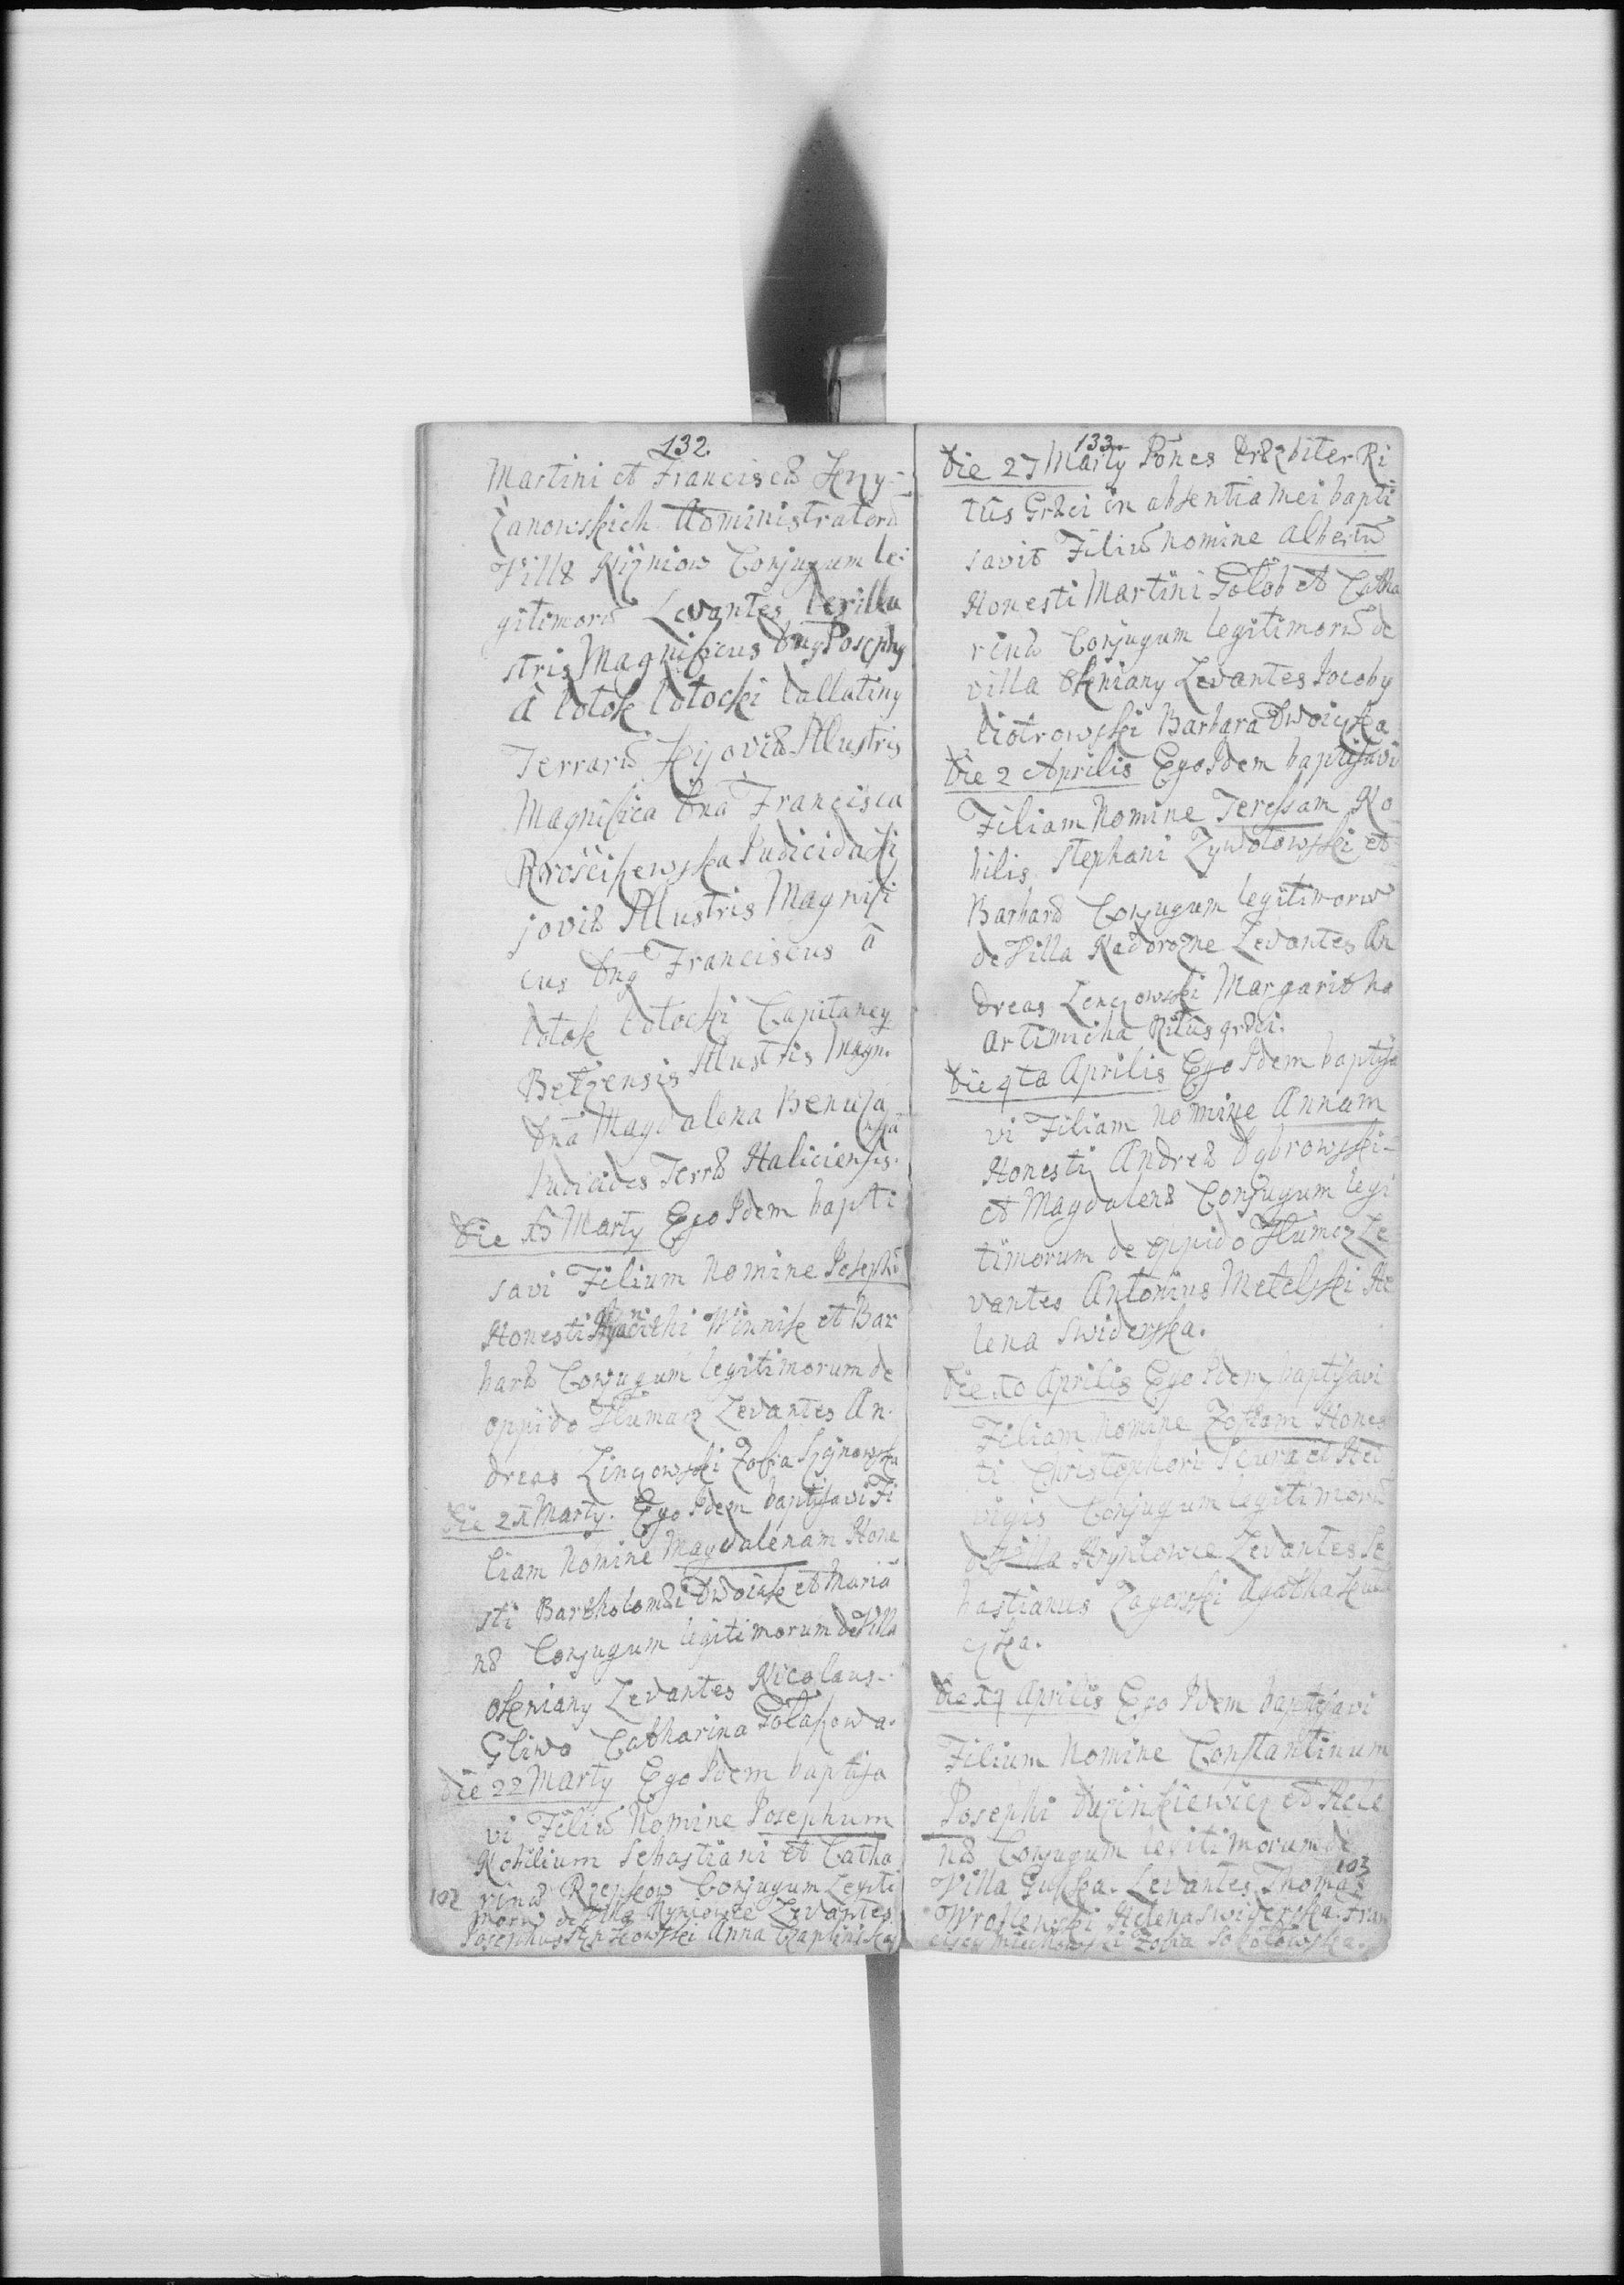 132.
Martini et Franciscæ Krzy-
żanowskich Administratorū
Villæ Niżniow Conjugum le-
gitimorū Levantes Perillu
stris Magnificus Dnꝯ Josephꝯ
à Potok Potocki Pallatinꝯ
Terrarū Kijoviæ Illustris
Magnifica Dnā Francisca
Kościszewska Judicida Ki
joviæ Illustris Magnifi
cus Dnꝯ Franciscus à
Potok Potocki Capitaneꝯ
Bełzensis Illustris Magn.
Dnā Magdalena Benu
Judicides Terræ Haliciensis.
Die 15 Marty Ego Idem bapti
savi Filium Nomine Josephū
Honesti Hyacinthi Winnik et Bar
baræ Conjugum legitimorum de
oppido Tłumacz Levantes An-
dreas Linczowski Zofia
Die 21 Marty. Ego Idem baptisavi Fi
liam Nomine Magdalenam Hone
sti Bartholomæi Dwoiak et Maria
næ Conjugum legitimorum de Villa
Okniany Levantes Nicolaus
Gliwa Catharina
Die 22 Marty Ego Idem baptisa
vi Filiū Nomine Josephum
Nobilium Sebastiani et Catha
102 rinæ Rzepkow Conjugum Legiti
morū de Villa Levantes
Josephus Anna Czaplinska
133.
Die 27 Marty Pones Præzbiter Ri
tûs Græci in absentia mei bapti
savit Filiū nomine Albertū
Honesti Martini Golob et Catha
rinæ Conjugum legitimorū de
villa Okniany Levantes Jacobꝯ
Piotrowski Barbara Dwoiaka
Die 2 Aprilis Ego Idem baptisavi
Filiam Nomine Teressam No
bilis Stephani Zywotowski et
Barbaræ Conjugum legitimorū
de Villa Nadorozne Levantes An
dreas Lenczowski Margaritha
Artimicha Ritûs græci.
Die 4ta Aprilis Ego Idem baptisa
vi Filiam nomine Annam
Honesti Andreæ Dąbrowski
et Magdalenæ Conjugum legi
timorum de oppido Tłumacz Le
vantes Antonius Metelski He
lena Swiderska.
Die 10 Aprilis Ego Idem baptisavi
Filiam Nomine Zofiam Hones
ti Christophori Scura et Hed
vigis Conjugum legitimorū
de Villa Levantes Se
bastianus Zagorski Agatha
cska.
Die 14 Aprilis Ego Idem baptisavi
Filium Nomine Constantinum
Josephi et Hele
næ Conjugum legitimorum de
103
Villa Levantes Thomas
Wroblewski Helena Swiderska Fran
Zofia Sokołowska.